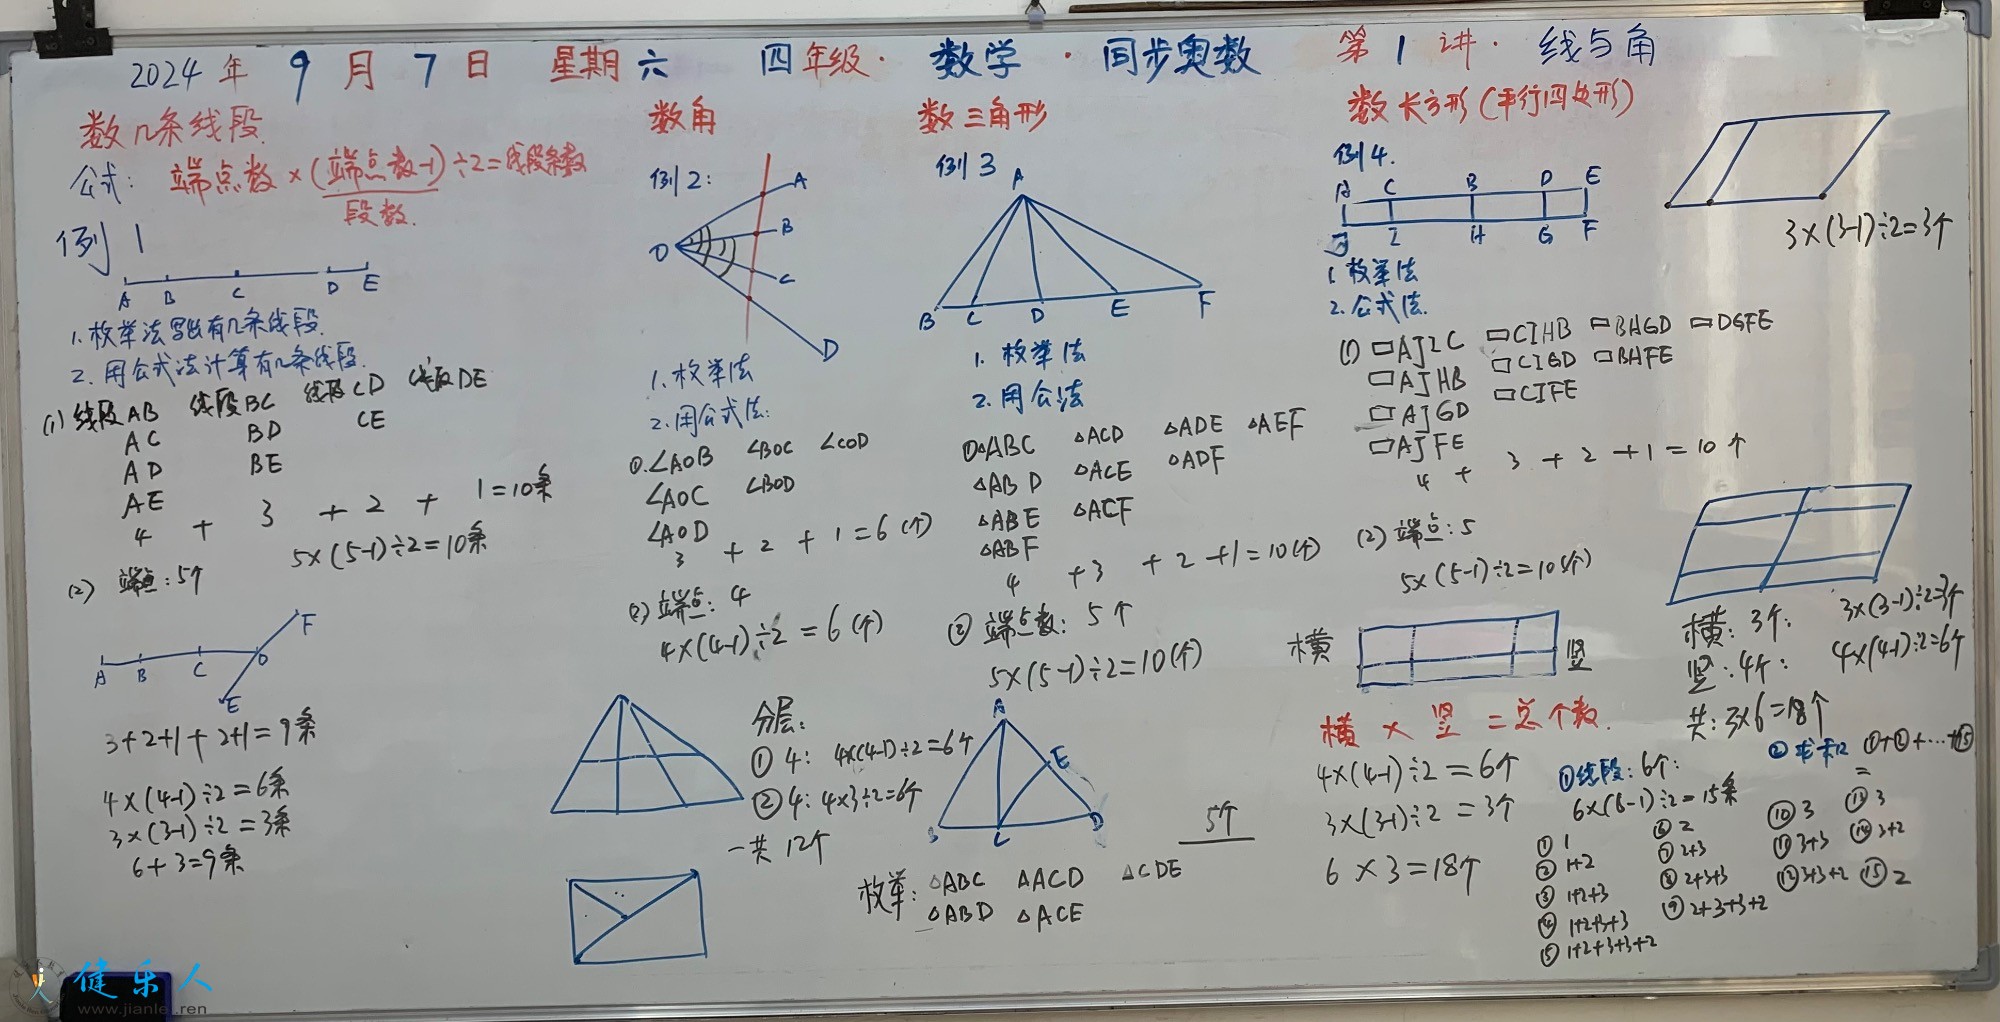 2024年 9月7日 星期六 四年级·数学·同步奥数 第1讲·线与角
数几条线段
公式: 端点数×(端点数-1)÷2=线段条数
段数.
例1
A B C D E
1.枚举法写出有几条线段.
2.用公式法计算有几条线段.
(1) 线段AB 线段BC 线段CD 线段DE
AC BD CE
AD BE
AE
4 + 3 + 2 + 1=10条
5×(5-1)÷2=10条
(2) 端点:5个
A B C O F
E
3+2+1+2+1=9条
4×(4-1)÷2=6条
3×(3-1)÷2=3条
6+3=9条
数角
例2:
O A B C D
1.枚举法
2.用公式法:
①.∠AOB ∠BOC ∠COD
∠AOC ∠BOD
∠AOD
3 + 2 + 1=6(个)
(2)端点:4
4×(4-1)÷2=6(个)
分层:
①4: 4×(4-1)÷2=6个
②4: 4×3÷2=6个
一共12个
数三角形
例3
A
B C D E F
1.枚举法
2.用公法
①△ABC △ACD △ADE △AEF
△ABD △ACE △ADF
△ABE △ACF
△ABF
4 +3 + 2 +1=10(个)
② 端点数:5个
5×(5-1)÷2=10(个)
A
E
B C D
5个
枚举:△ABC △ACD △CDE
△ABD △ACE
数长方形(平行四边形)
例4.
A C B D E
J I H G F
1.枚举法
2.公式法.
(1) ▭AJIC ▭CIHB ▭BHGD ▭DGFE
▭AJHB ▭CIGD ▭BHFE
▭AJGD ▭CIFE
▭AJFE
4 + 3 + 2 +1=10个
(2) 端点:5
5×(5-1)÷2=10(个)
横 竖
横×竖=总个数.
4×(4-1)÷2=6个
3×(3-1)÷2=3个
6×3=18个
3×(3-1)÷2=3个
横:3个: 3×(3-1)÷2=3个
竖:4个: 4×(4-1)÷2=6个
共:3×6=18个
①线段:6个:
6×(6-1)÷2=15条
②求和 ①+②+…+⑮
=
① 1
② 1+2
③ 1+2+3
④ 1+2+3+3
⑤ 1+2+3+3+2
⑥ 2
⑦ 2+3
⑧ 2+3+3
⑨ 2+3+3+2
⑩ 3
⑪ 3+3
⑫ 3+3+2
⑬ 3
⑭ 3+2
⑮ 2
健乐人
www.jianle.ren